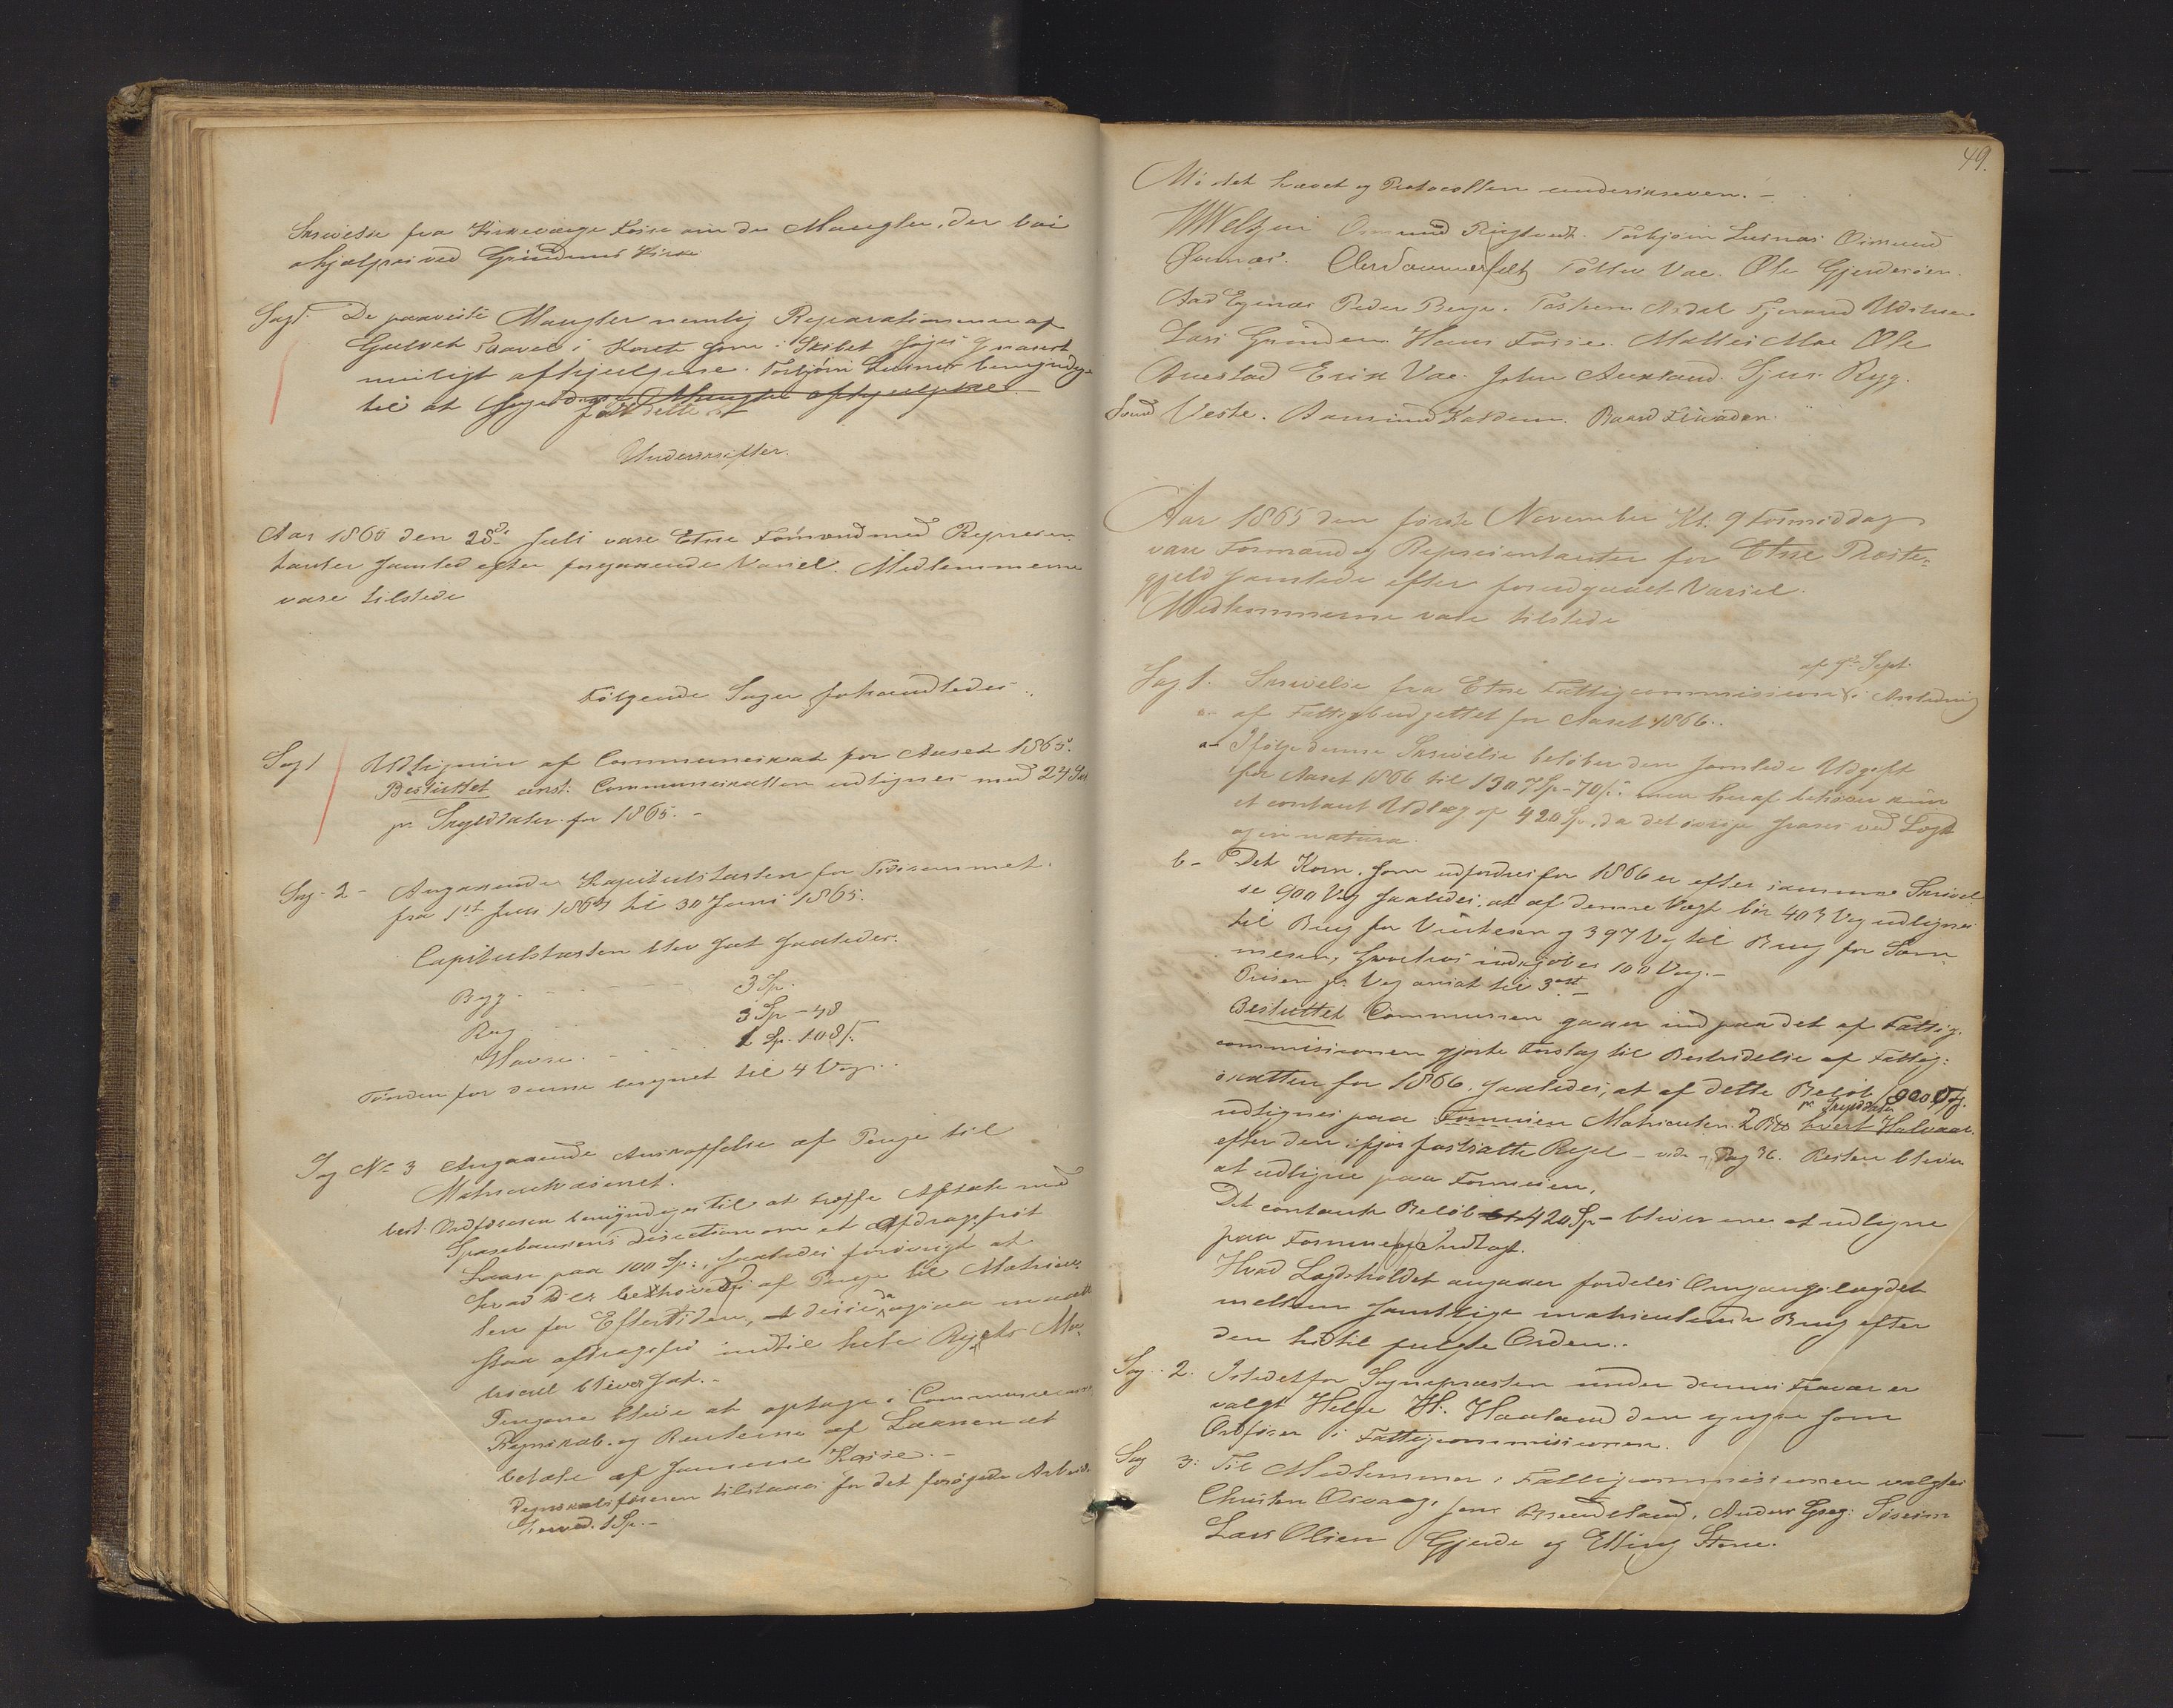 Skrivelse fra Kirkeværge Fosse om de Mangler, der bør
afhjælpes ved Grindems Kirke
Sag 1. De paaviste Mangler nemlig Reparationerne af
Gulvet saavel i Koret som i Skibet søges snarest
muligt afhjulpne. Torbjørn Lusnes bemyndiges
til at søge disse Mangler afhjulpne
faa dette
Underskrifter.
Aar 1865 den 28de Juli vare Etne Formænd med Represen-
tanter samlede efter foregaaende Varsel. Medlemmerne
vare tilstede
Følgende Sager forhandledes:
Sag 1 Udligning af Communeskat for Aaret 1865.
Besluttet enst: Communeskatten udlignes med 24 Sk
pr Skylddaler for 1865. -
Sag 2 - Angaaende Kapitelstaxten for Tidsrummet
fra 1ste Juli 1864 til 30 Juni 1865.
Capitelstaxten blev sat saaledes:
Byg - - - 3 Sp.
Rug - - - 3 Sp - 48
Havre. - - - 1 Sp. 108 s.
Tønden for denne beregnet til 4 Vog.
Sag No 3 Angaaende Anskaffelse af Penge til
Matrikulvæsenet.
besl. Ordføreren bemyndiges til at træffe Aftale med
Sparebankens Direction om et Afdragsfrit
Laan paa 100 Sp., saaledes forøvrigt at
hvad der behøves af Penge til Matriku-
len for Eftertiden, at disse da ogsaa maatte
staa afdragsfri indtil hele Rigets Ma-
trikul bliver sat. -
Pengene blive at optage i Communecasse
Regnskab og Renterne af Laanen at
betale af samme Kasse. -
Regnskabsføreren tilstaaes for det forøgede Arbeide
herved 1 Sp. -
49.
Mødet hævet og Protocollen underskreven. -
Welhzin Osmund Rygtvedt. Torbjørn Lusnes Osmund
Øvernæs. Tollev Vae. Ole Gjerdesøen.
Aad Egenæs Peder Berge. Torstein Ardal Tjerand
Lars Grinden Hans Fosse. Mattis Moe Ole
Anestad Erik Vae. John Auestad Sjur Ryg.
Svend Veste. Aamund Kaldem. Baard
Aar 1865 den første November Kl. 9 Formiddag
vare Formænd og Repræsentanter for Etne Præste-
gjeld samlede efter forudgaaet Varsel.
Medlemmerne vare tilstede
Sag 1. Skrivelse fra Etne Fattigcommission af 9de Sept. i Anledning
af Fattigbudgettet for Aaret 1866.
a- Ifølge denne Skrivelse beløber den samlede Udgift
for Aaret 1866 til 1307 Sp - 70 s. men heraf behøves kun
et contant Udlæg af 420 Sp. da det øvrige haves ved Lægd
og in natura.
b- Det Korn, som udfordres for 1866 er efter samme Skrivel
se 900 Vog saaledes, at af denne Vægt bør 403 Vog udlignes
til Brug for Vinteren og 397 Vog til Brug for Som-
meren, hvorhos indkjøbes 100 Vog. -
Prisen pr Vog ansat til 3 ort
Besluttet Communen gaaer ind paa det af Fattig-
commissionen gjorte Forslag til Bestridelse af Fattig-
skatten for 1866, saaledes, at af dette Beløb 900 Vog
udlignes paa Formuen Matrikulen 2 pr Skylddaler hvert Halvaar
efter den ifjor fastsatte Regel - vide Pag 36. Resten bliver
at udligne paa Formuen.
Det contante Beløb 420 Sp - bliver ene at udligne
paa Formue og Indtægt.
Hvad Lægdsholdet angaaer fordeles Omgangslægdet
mellem samtlige matriculerede Brug efter
den hidtil fulgte Orden.
Sag. 2. Istedetfor Sognepræsten under dennes Fravær er
valgt Helge H. Haaland den yngre som
Ordfører i Fattigcommissionen.
Sag 3: Til Medlemmer i Fattigcommissionen valgtes
Christen Osvaag, Jens Grindeland, Anders Greg: Sørheim
Lars Olsen Gjerde og Elling Stene.